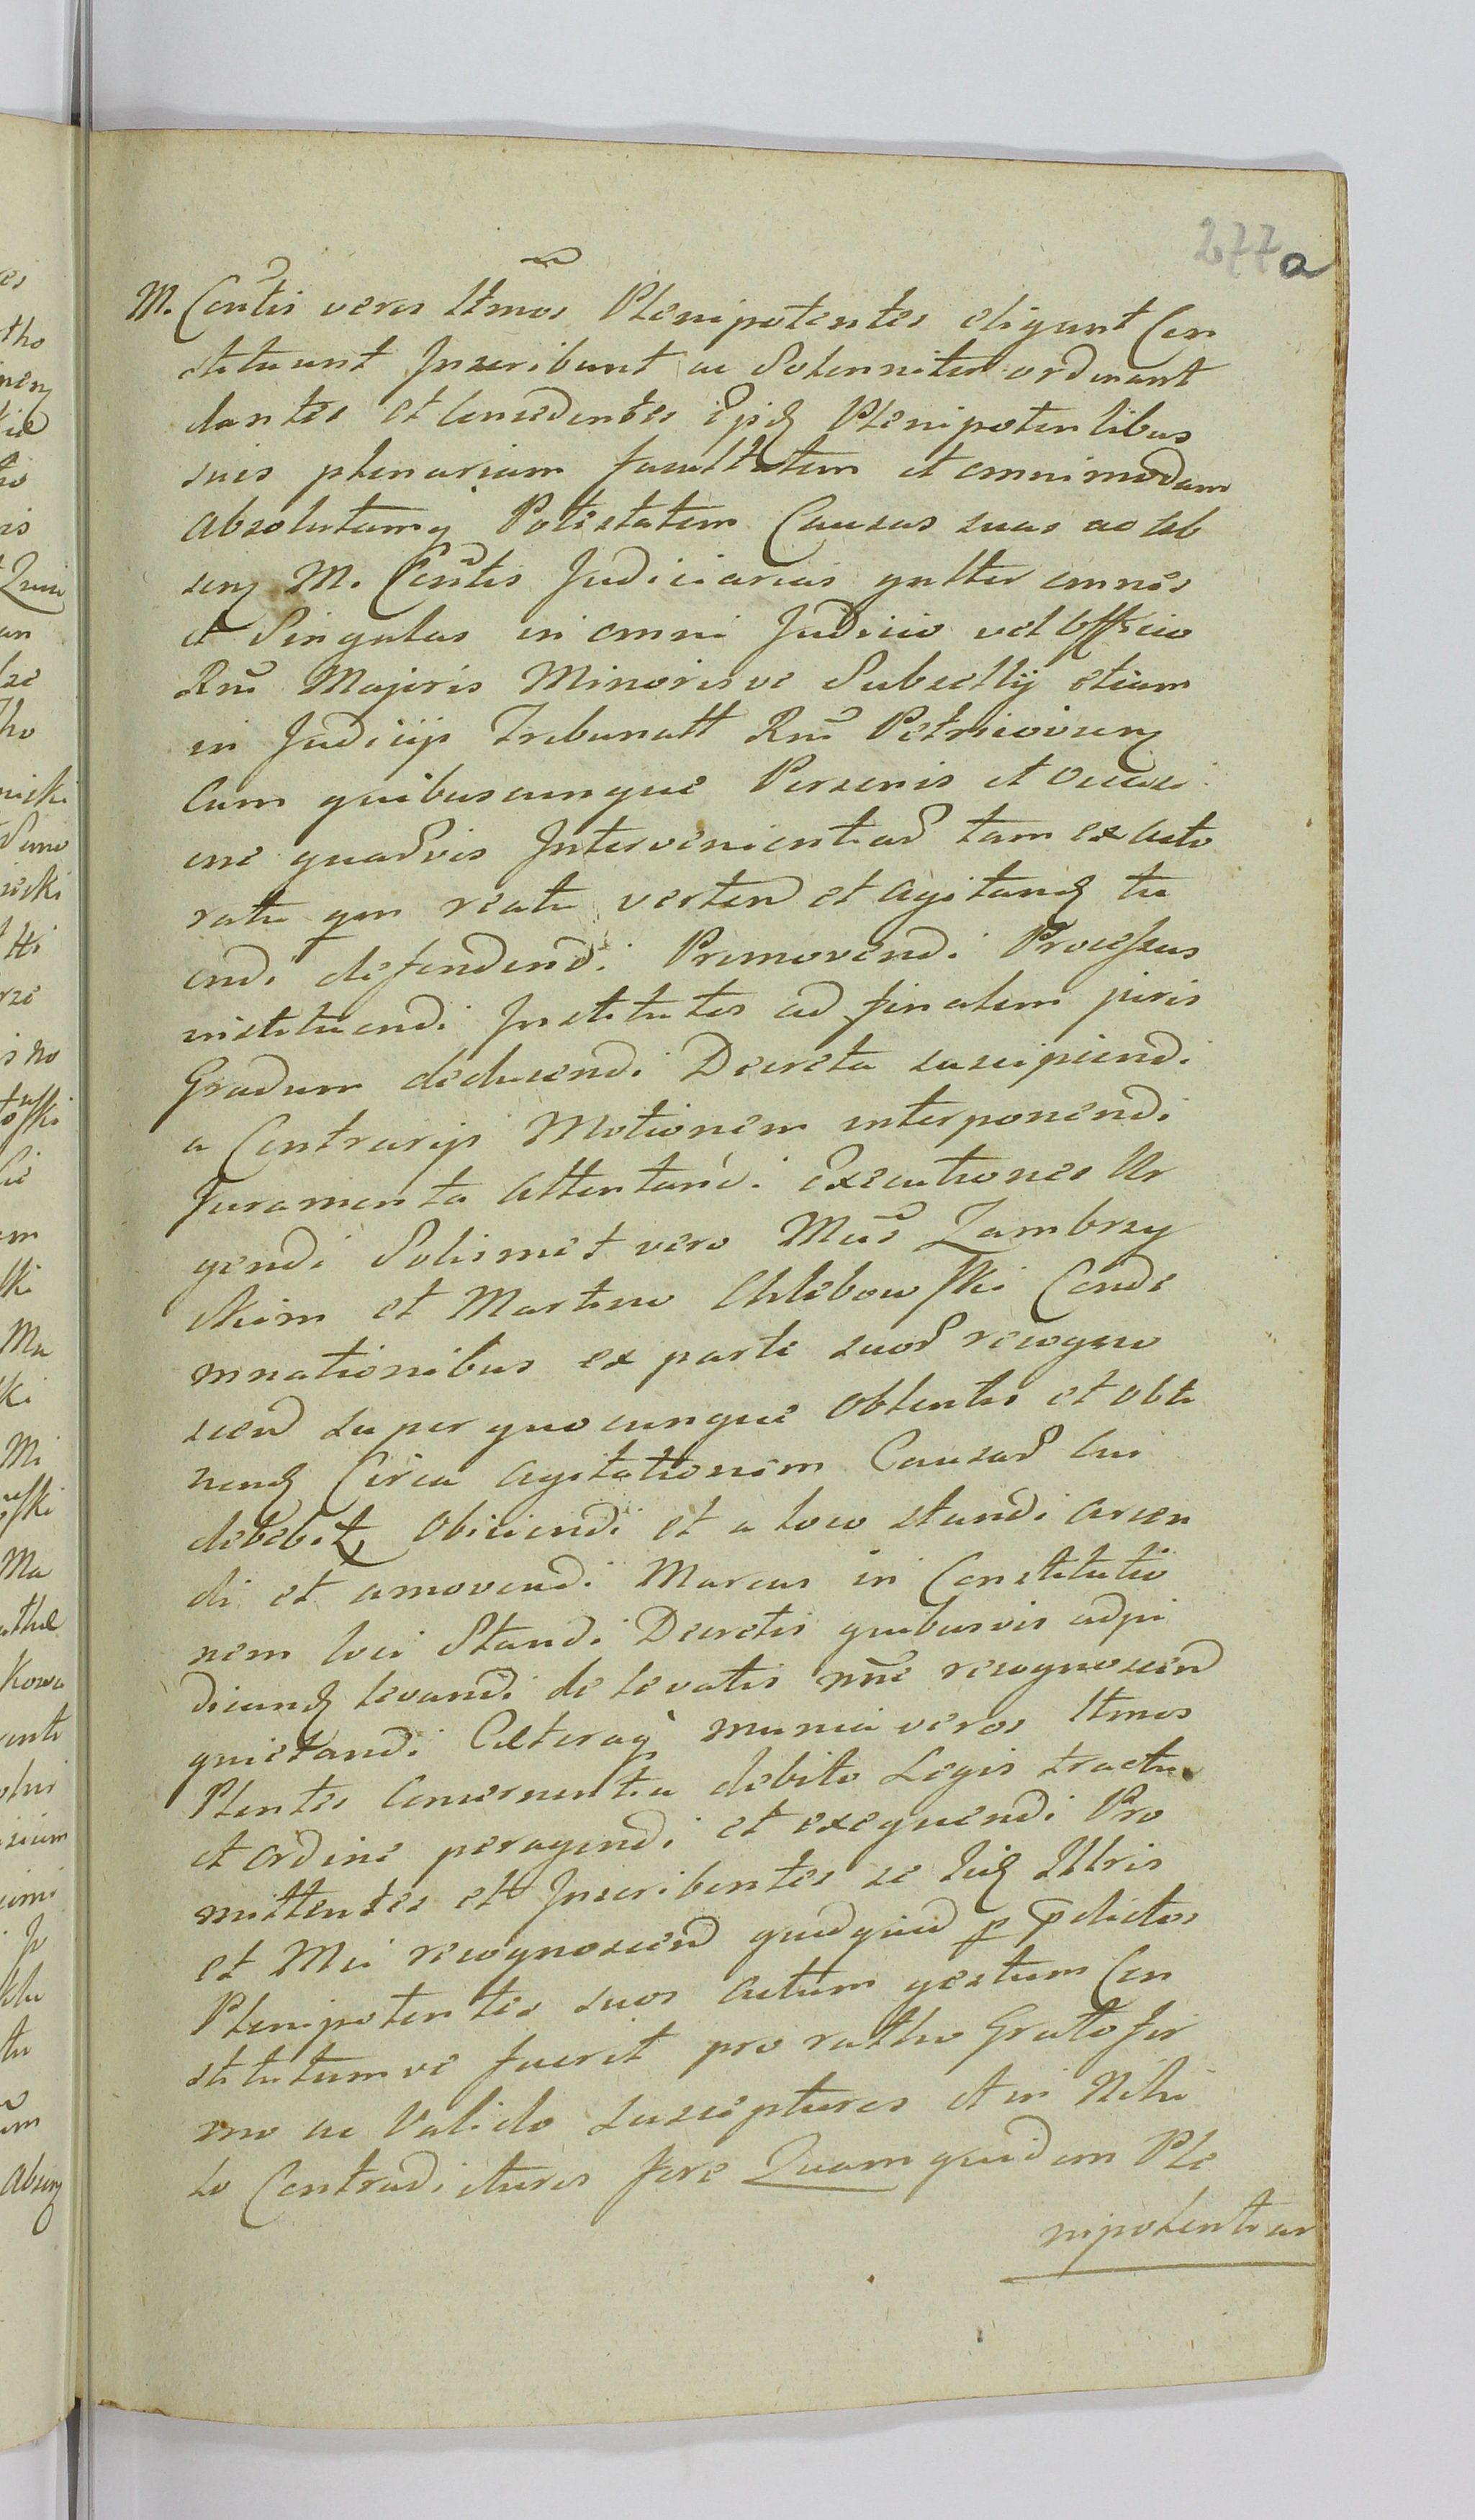 277a
M. Contis veros Ltmos Plenipotentes eligunt Con
stituunt Inscribunt ac Solenniter ordinant
dantes et Concedentes Epiq Plenipotentibus
suis plenariam facultatem et omnimodam
absolutamq Potestatem Causas suas ac ab
senq M. Contis Judiciarias gnltter omnes
et Singulas in omni Judicio vel Officio
Rni Majoris Minorisve Subsellij etiam
in Judicijs Tribunatt Rni Petricovienq
Cum quibuscunque Personis et occasi
one quadvis Intervenientiad tam ex acto
ratu qm reatu verten et agitandq tu
endi defendendi Promovendi Processus
instituendi Institutos ad finalem juris
Gradum deducendi Decreta suscipiendi
a Contrarijs Motionem interponendi
Juramenta attentandi Executiones Ur
gendi Solismet vero Mcis Zambrzy
ckim et Martino Chlebowski Conde
mnationibus ex parte suod recogno
scend super quocunque obtentis et obti
nendq Circa agitationem Causad cui
debebit obiiciendi et a loco standi arcen
di et amovendi Marcas in Constitutio
nem loci Standi Decretis quibusvis adju
dicandq levandi de levatis nne recognoscend
quietandi Ceteraq munia veros Ltmos
Plentes Concernentia debito Legis tractu
et ordine peragendi et exequendi Pro
mittentes et Inscribentes se hicq Illris
et Mci recognoscend quidquid p pdictos
Plenipotentes suos actum gestum Con
stitutumve fuerit pro ratho Grato fir
mo ac Valido suscepturos et in Nihi
lo Contradicturos fore Quam quidem Ple
nipotentiam